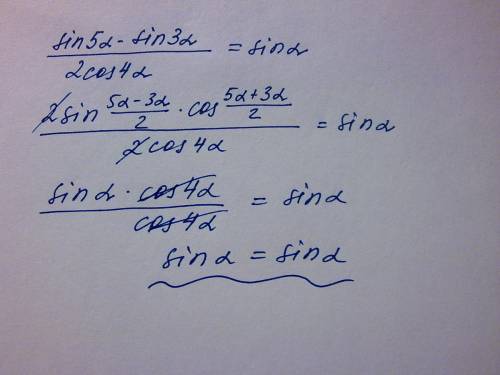 (sin5α - sin3α) / (2cos4α) = sinα
(2sin (5α-3α)/2 · cos (5α+3α)/2) / (2cos4α) = sinα
(sinα · cos4α) / (cos4α) = sinα
sinα = sinα